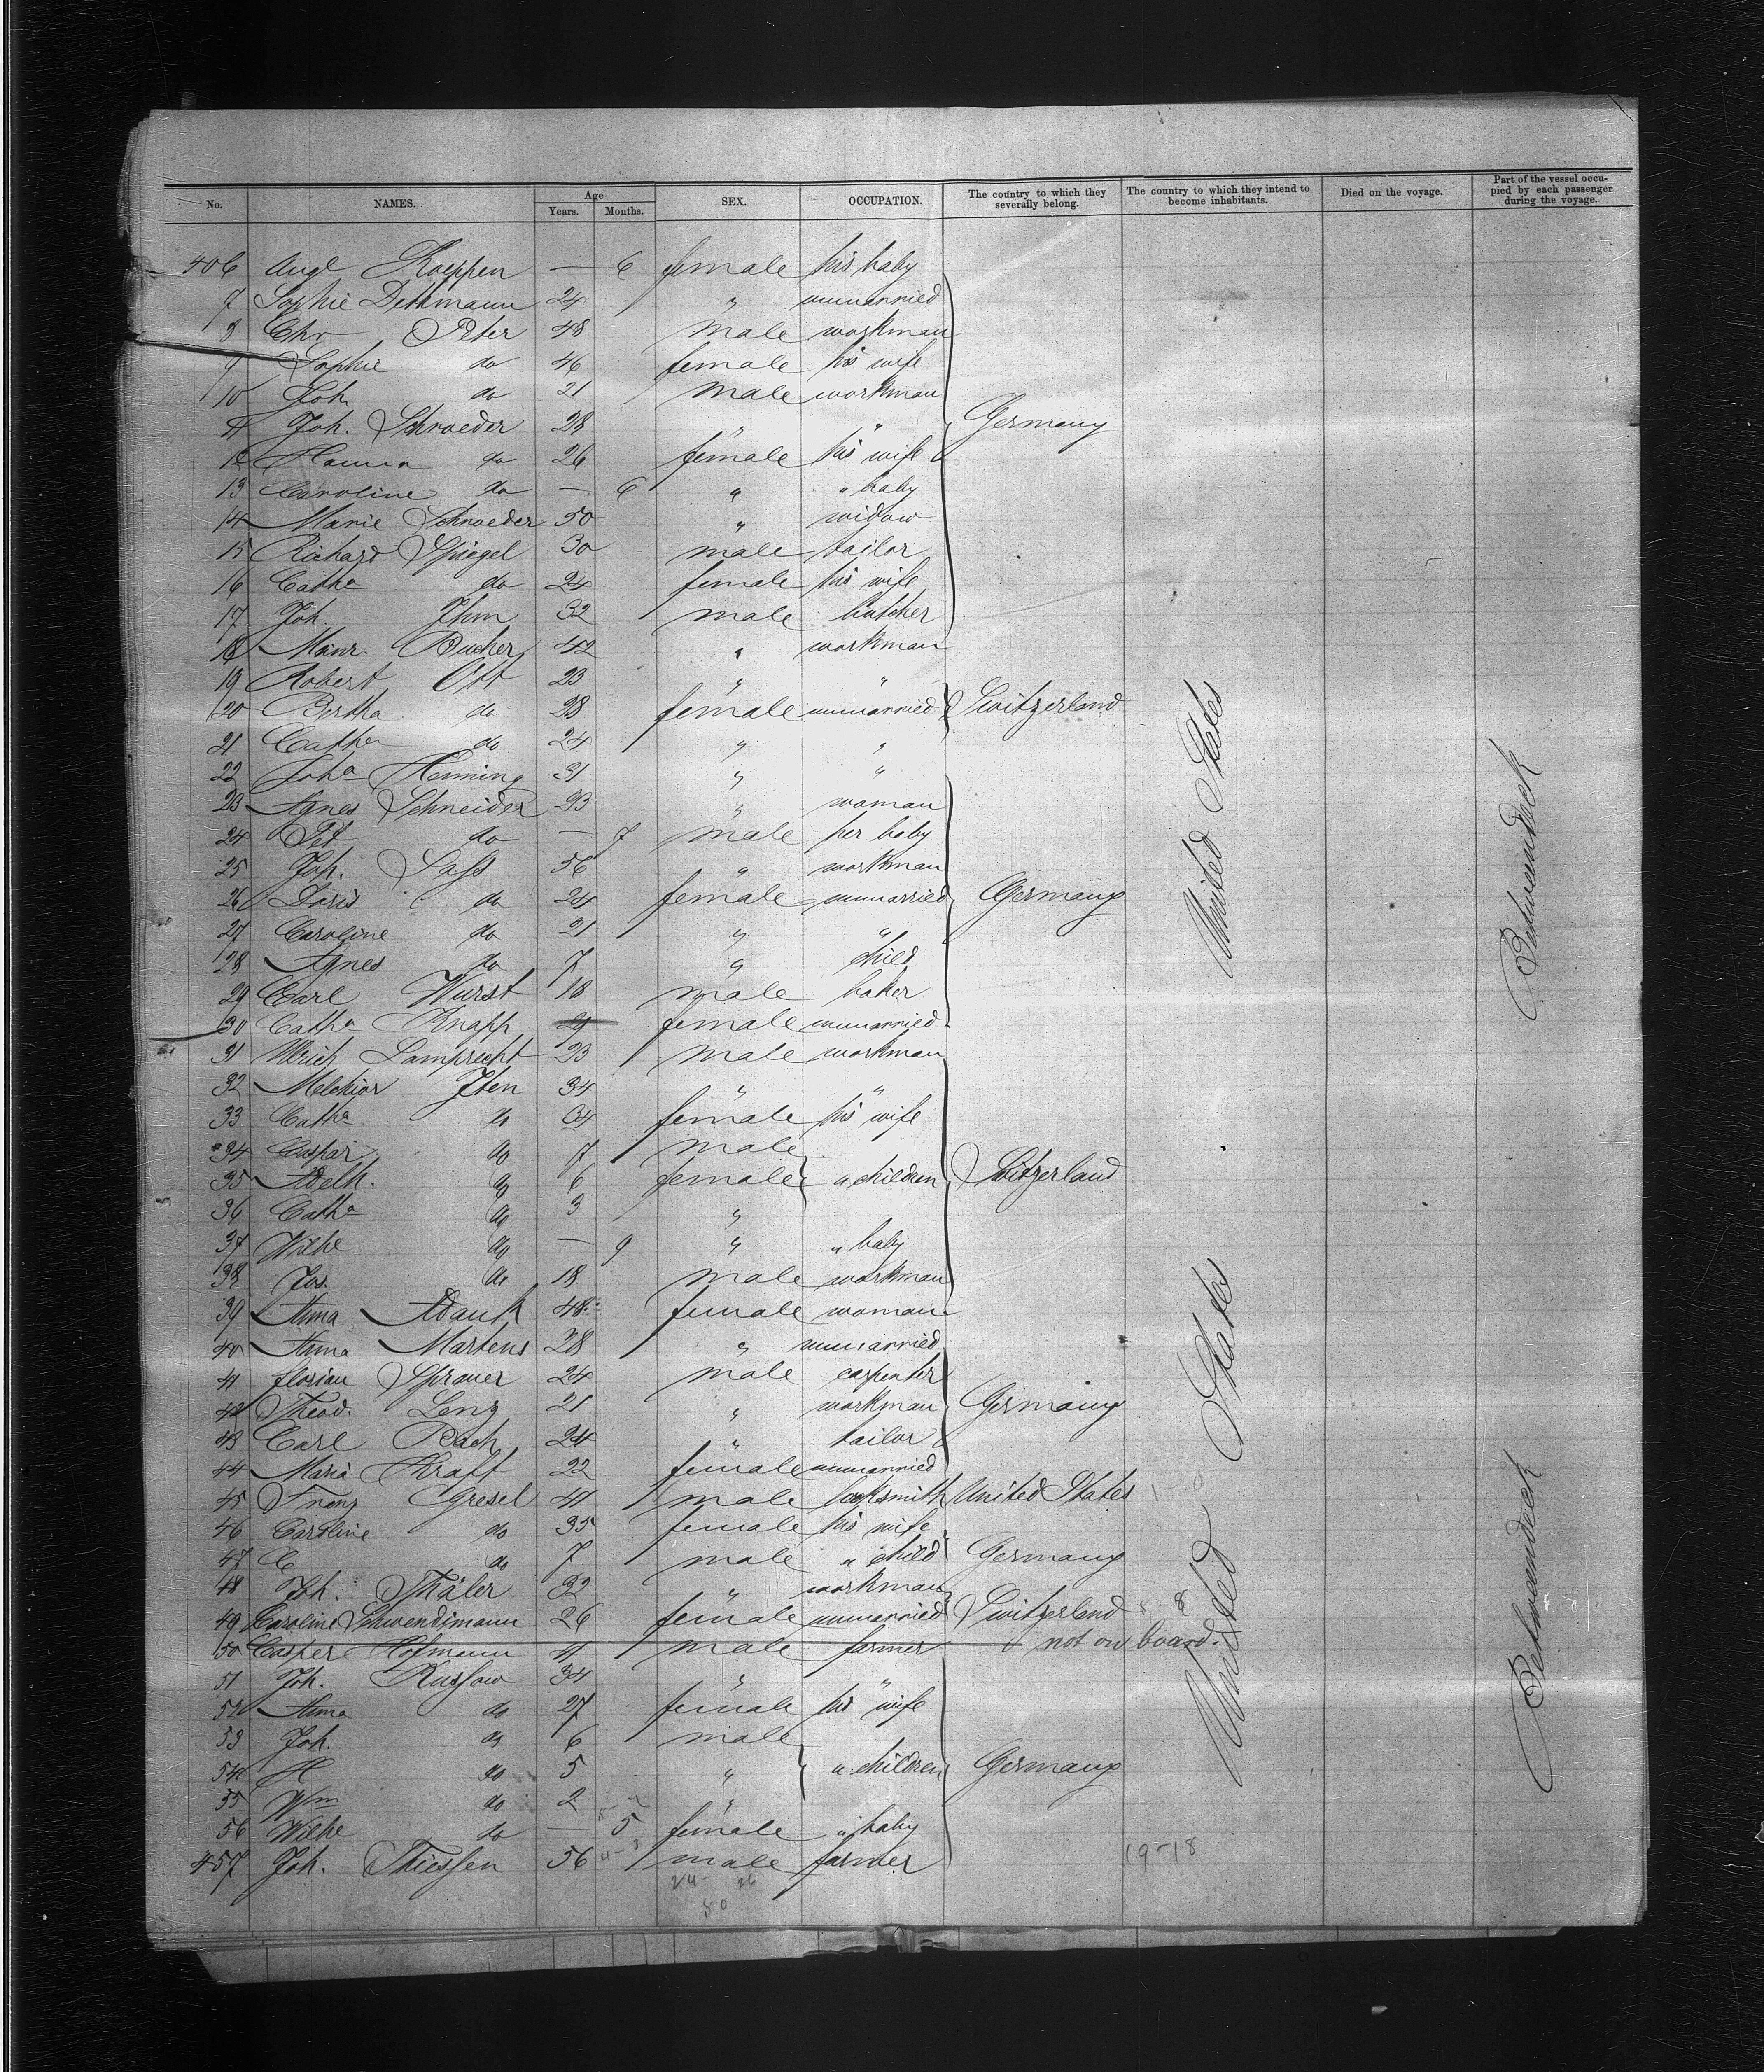 No. NAMES. Age Years. Months. SEX. OCCUPATION. The country to which they severally belong. The country to which they intend to become inhabitants. Died on the voyage. Part of the vessel occupied by each passenger during the voyage.
406 Augᵉ Koeppen — 6 female his baby
7 Sophie Dethmann 24 " unmarried
8 Chr Peter 48 male workman
9 Sophie do 46 female his wife
10 Joh do 21 male workman
11 Joh. Schroeder 28 " " Germany
12 Hanna do 26 female his wife
13 Caroline do — 6 " " baby
14 Marie Schroeder 50 " widow
15 Richard Spiegel 30 male tailor
16 Cathᵃ do 24 female his wife
17 Joh. Ihm 32 male butcher
18 Bucher 42 " workman
19 Robert Ott 23 " "
20 Bertha do 28 female unmarried Switzerland
21 Cathᵃ do 24 " "
22 Johᵃ Heming 31 " "
23 Agnes Schneider 23 " woman
24 Pet do — 7 male her baby
25 Joh. Sass 56 " workman
26 Doris do 24 female unmarried Germany
27 Caroline do 21 " "
28 Agnes do 7 " child
29 Carl Wurst 18 male baker
30 Cathᵃ Knapp 21 female unmarried
31 Ulrich Lamprecht 23 male workman
32 Melchior Iten 34 " "
33 Cathᵃ do 34 female his wife
34 Caspar do 7 male
35 Adelh. do 6 female " children Switzerland
36 Cathᵃ do 3 "
37 Wilhe do — 9 " " baby
38 Jos. do 18 male workman
39 Anna Adank 48 female woman
40 Anna Martens 28 " unmarried
41 Florian Sprauer 24 male carpenter
42 Theod. Lenz 21 " workman Germany
43 Carl Bach 24 " tailor
44 Maria Kraft 22 female unmarried
45 Franz Gresel 41 male locksmith United States
46 Caroline do 35 female his wife
47 C do 7 male " child Germany
48 Joh. Thäler 32 " workman
49 Caroline Schwendimann 26 female unmarried Switzerland
50 Casper Hofmann 41 male farmer + not on board.
51 Joh. Kussow 34 " "
52 Anna do 27 female his wife
53 Joh. do 6 male
54 H do 5 " " children Germany
55 Wm do 2 "
56 Wilhe do — 5 female " baby
457 Joh. Thiessen 56 male farmer
United States
United States
Betweendeck
Betweendeck
19-18
24 26
50